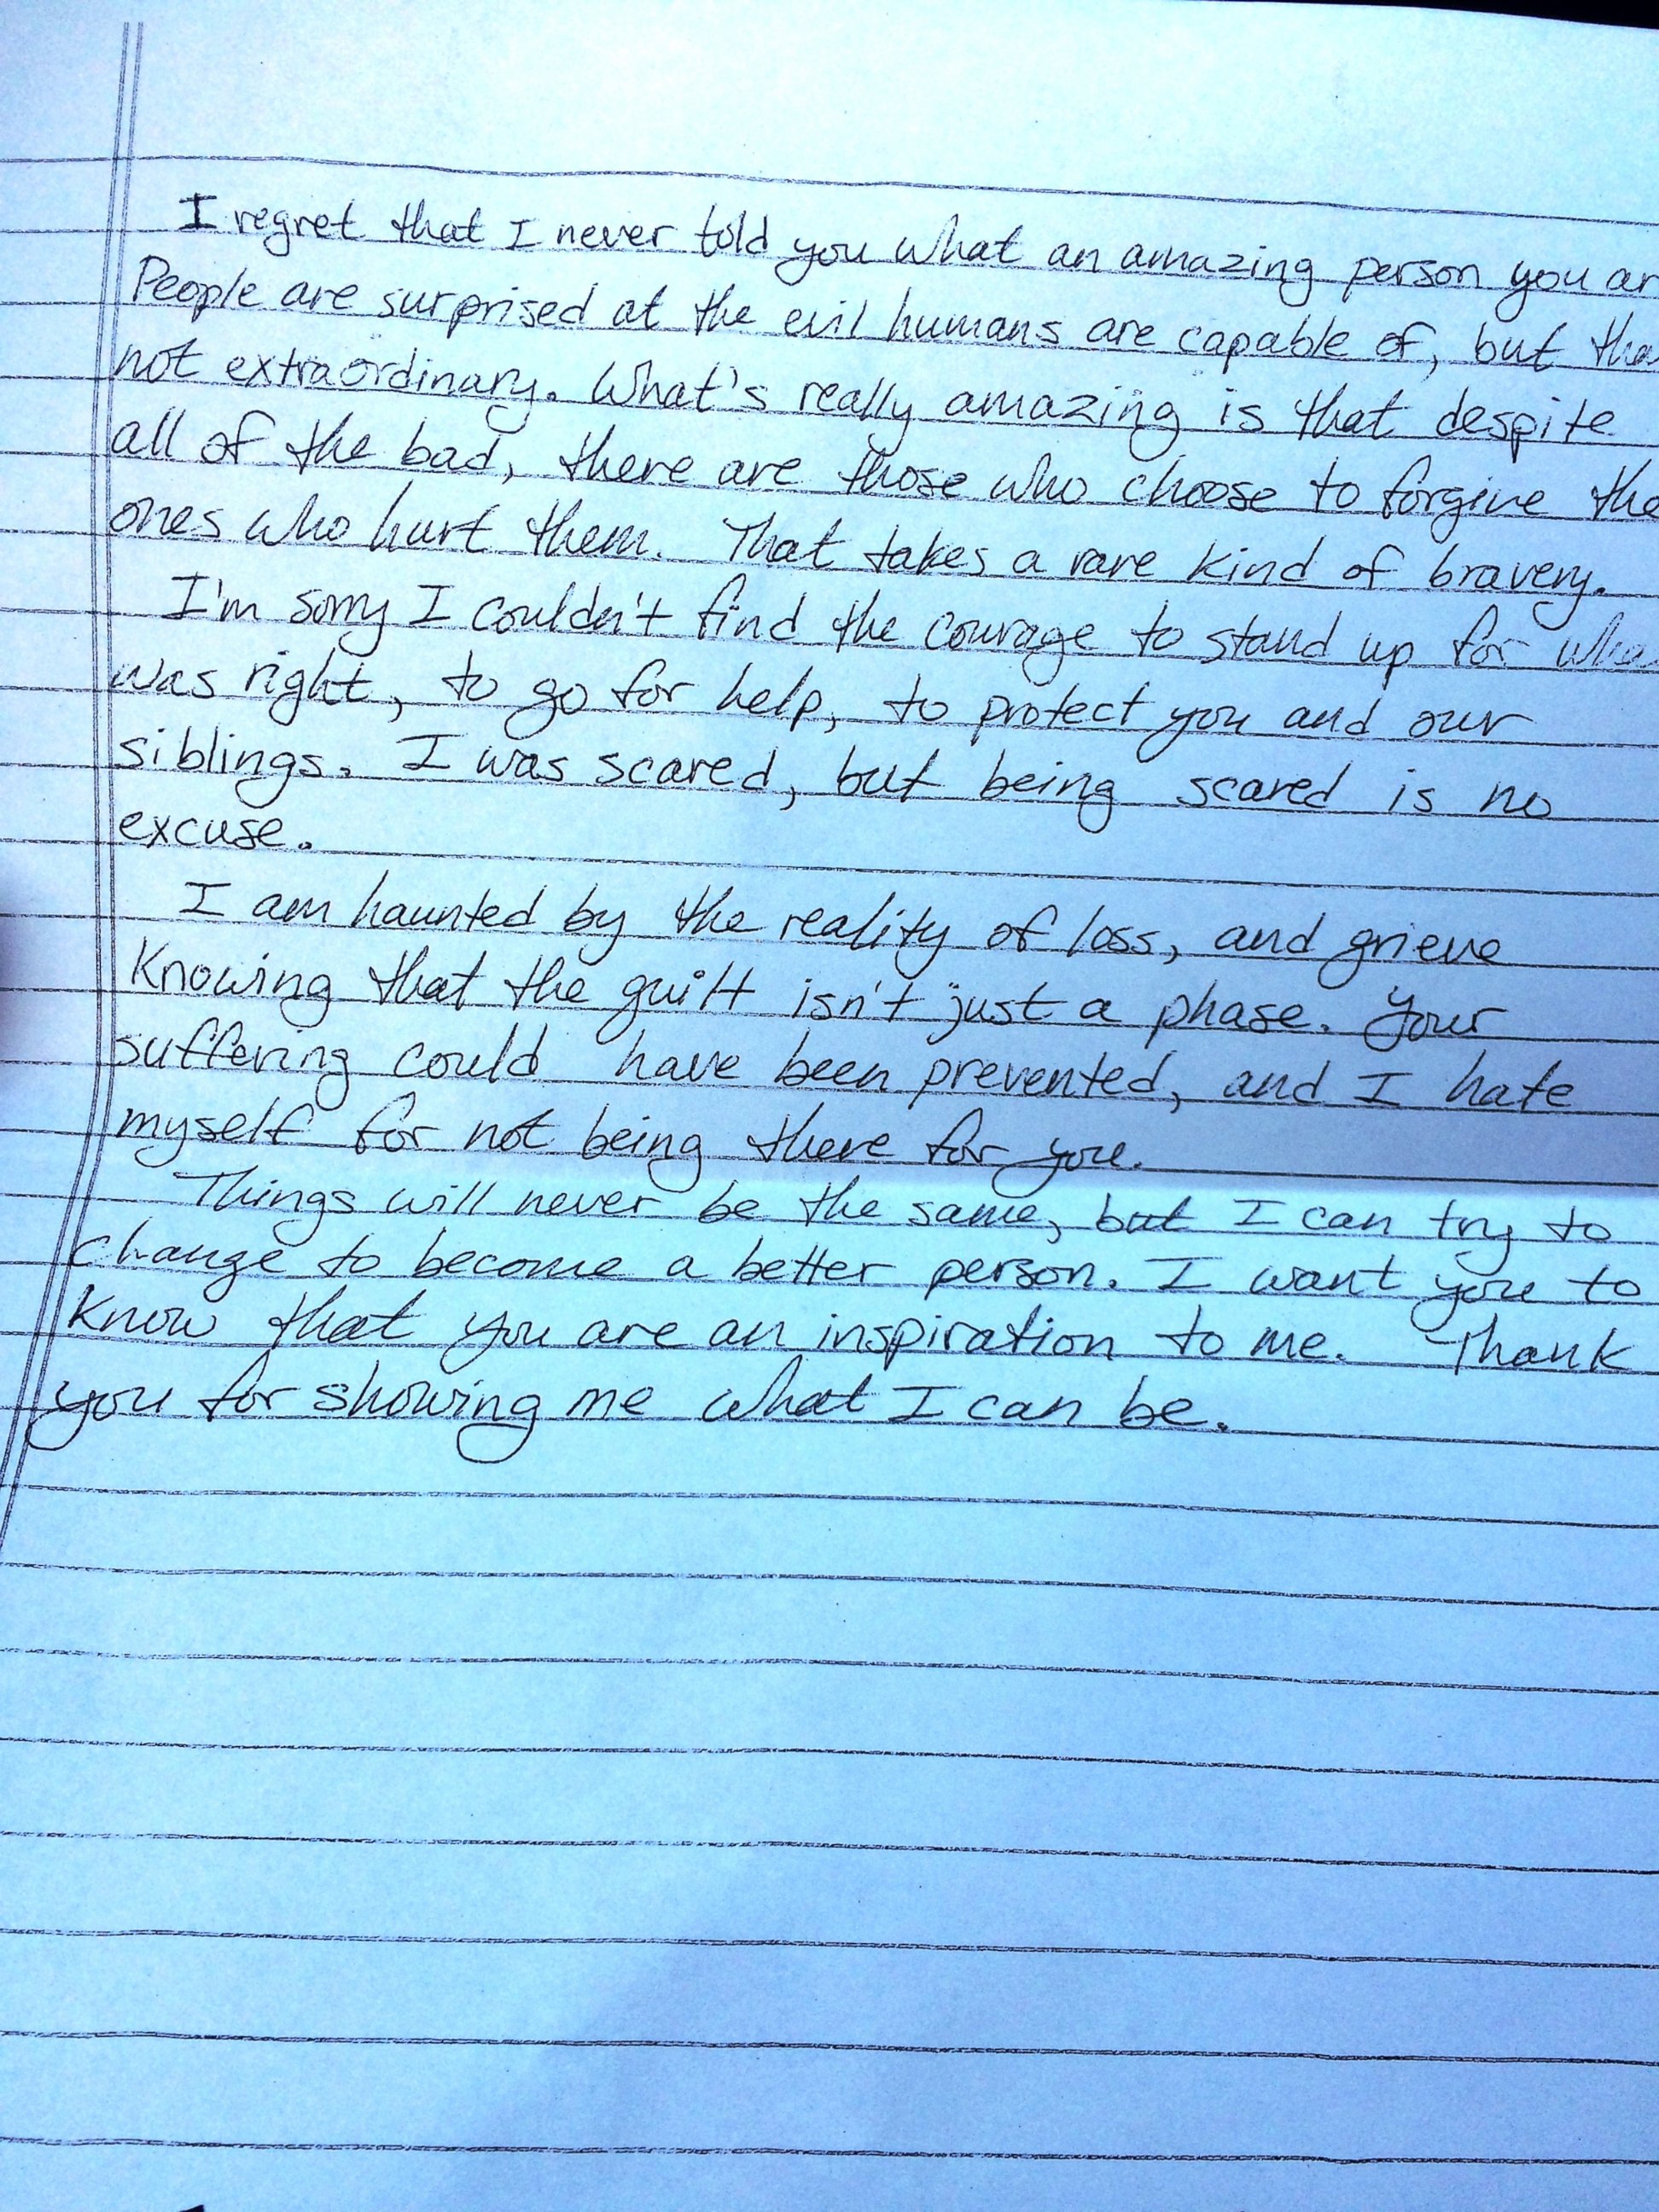 I regret that I never told you what an amazing person you ar
People are surprised at the evil humans are capable of, but tha
not extraordinary. What's really amazing is that despite
all of the bad, there are those who choose to forgive the
ones who hurt them. That takes a rare kind of bravery.
I'm sorry I couldn't find the courage to stand up for wha
was right, to go for help, to protect you and our
siblings. I was scared, but being scared is no
excuse.
I am haunted by the reality of loss, and grieve
Knowing that the guilt isn't just a phase. Your
suffering could have been prevented, and I hate
myself for not being there for you.
Things will never be the same, but I can try to
change to become a better person. I want you to
know that you are an inspiration to me. Thank
you for showing me what I can be.